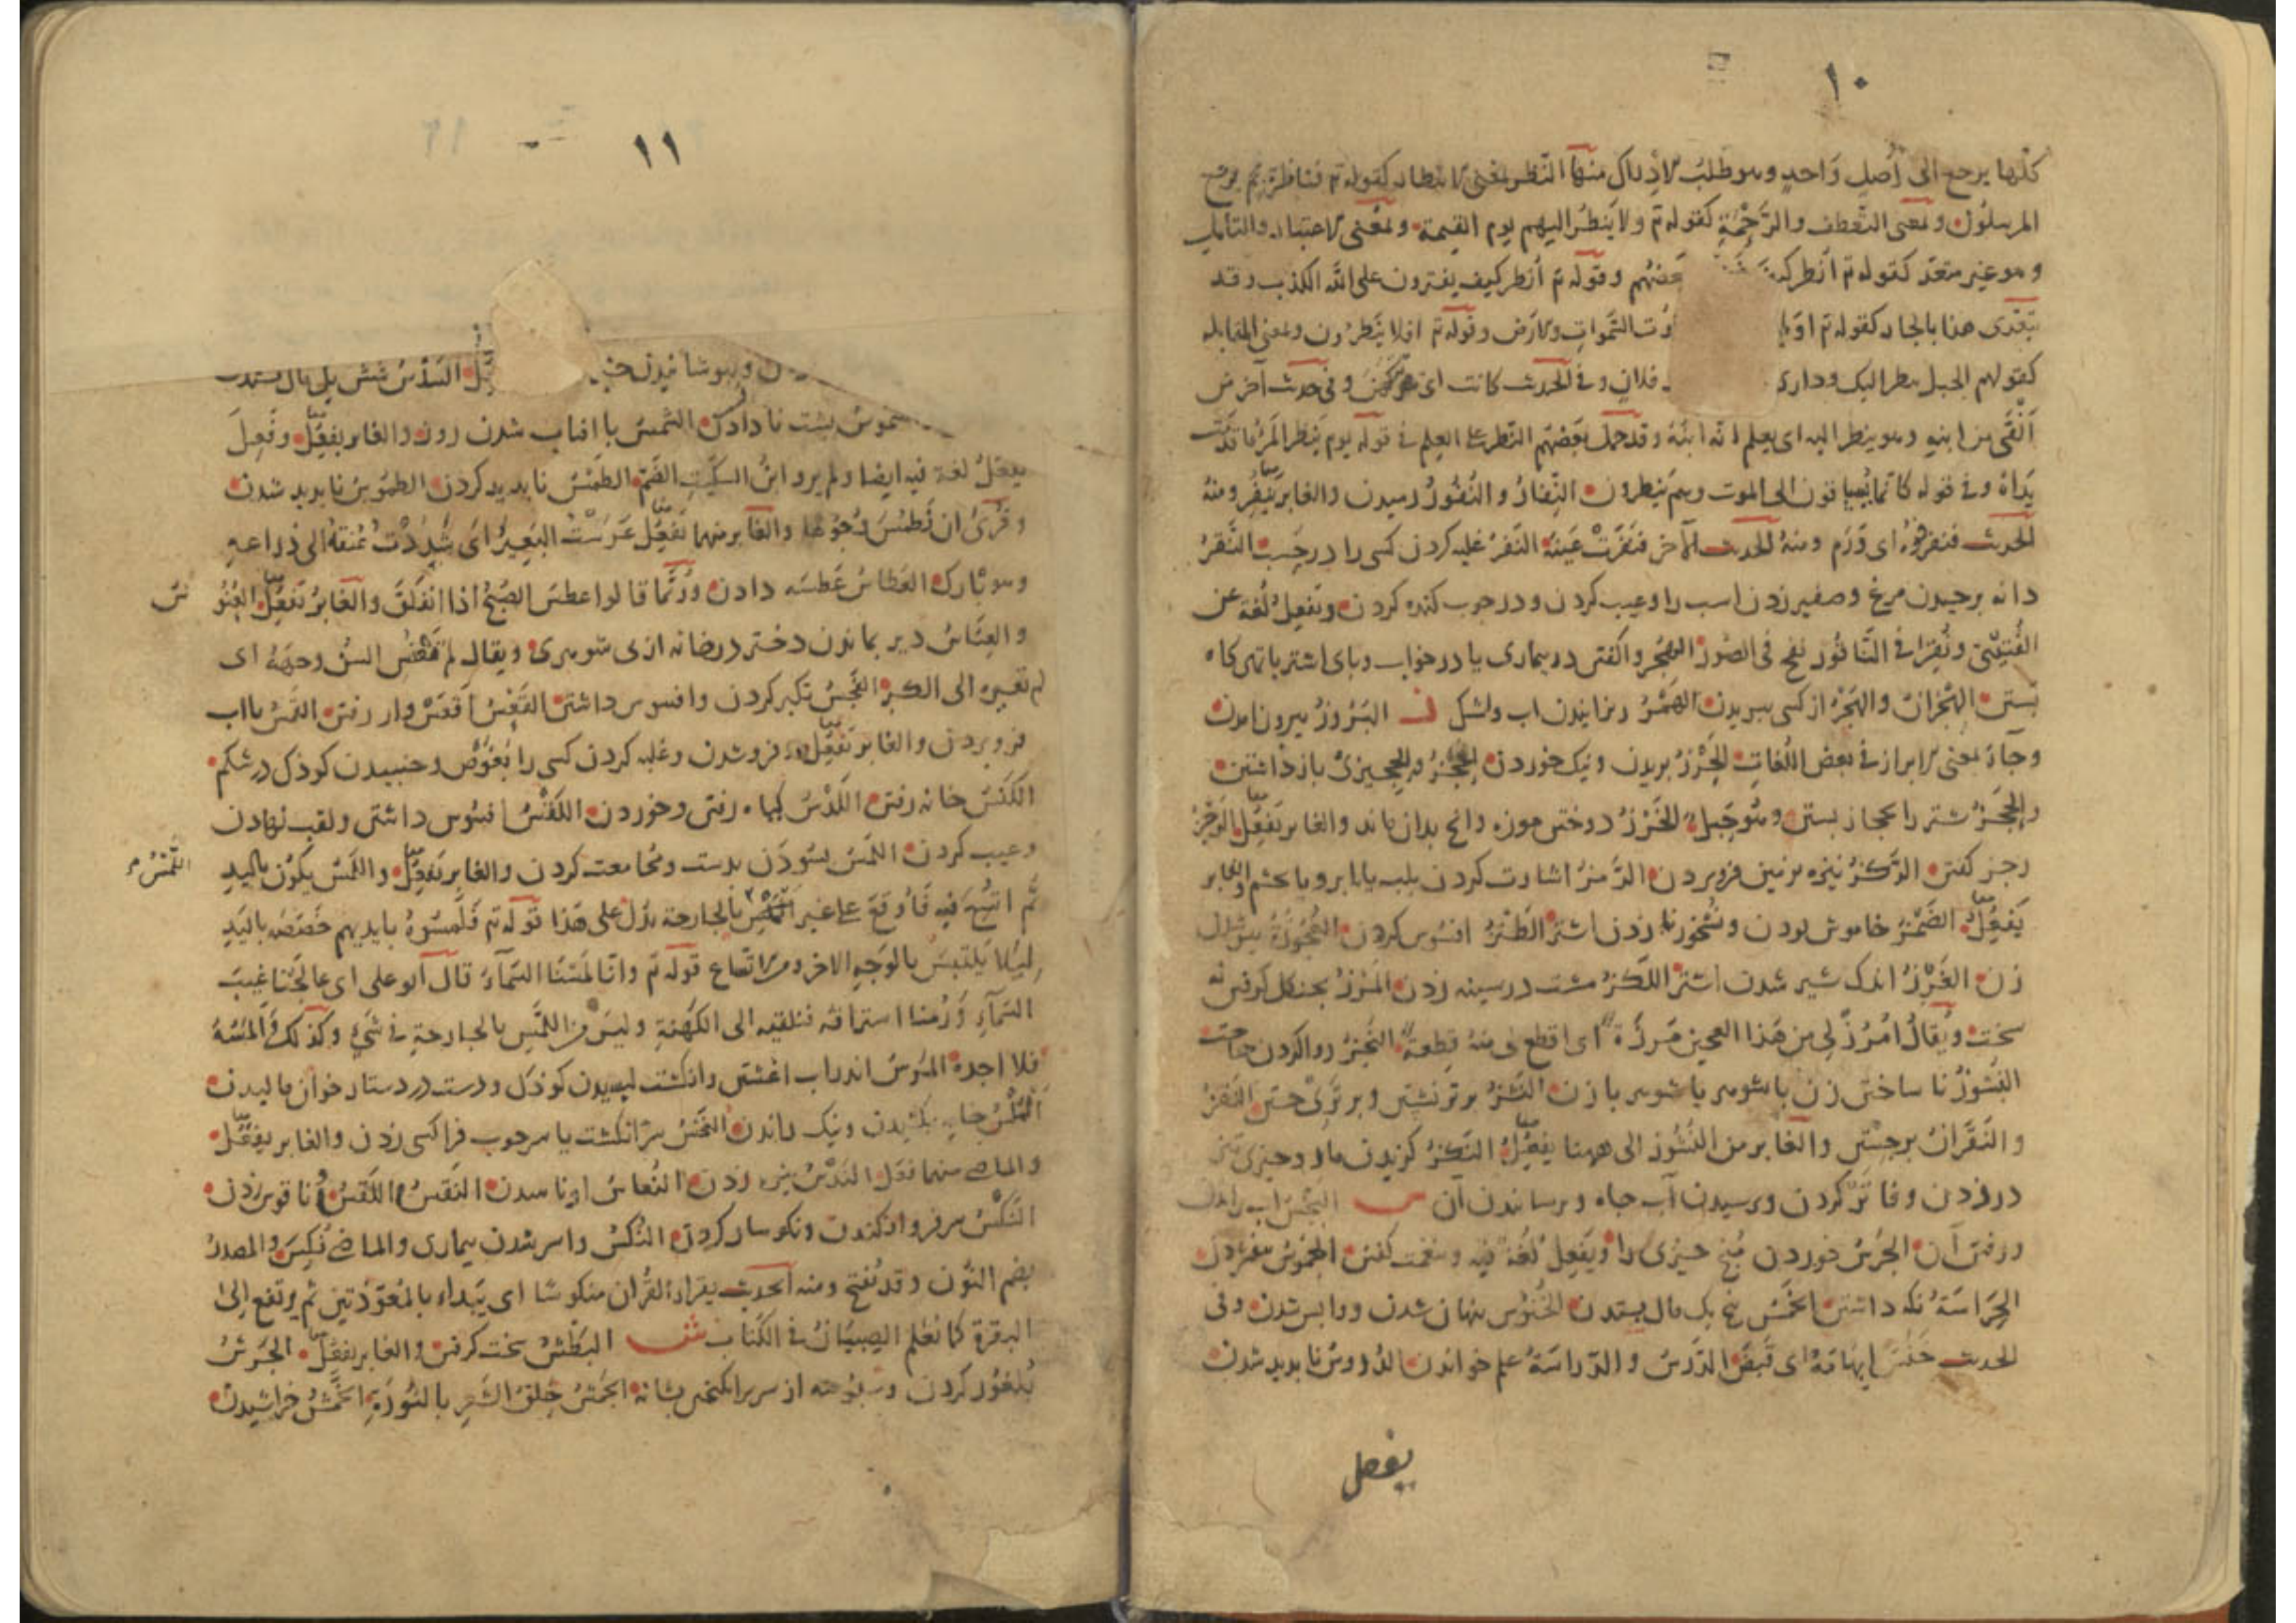 ١٠
كلها يرجع الى أصل واحد وهو طلب الادراك منها النظر بمعنى الانتظار كقوله تع فناظرة بم يرجع
المرسلون ولمعنى التعطف والرحمة كقوله تع ولا ينظر اليهم يوم القيمة ولمعنى الاعتبار والتأمل
وهو غير متعد كقوله تع انظر كيف بعضهم وقوله تع أنظر كيف يفترون على الله الكذب وقد
تعدى هذا بالجار كقوله تع اولم وت السموات والارض وقوله تع افلا ينظرون ولمعنى المقابله
كقولهم الجبل ينظر اليك ودارى فلان وفى الحديث كانت اى وفى حديث آخر من
ابنه وهو ينظر اليه اى يعلم انه ابنه وقد حمل بعضهم النظر على العلم فى قوله يوم ينظر المرء ما قدمت
يداه وفى قوله كانما يساقون الى الموت وهم ينظرون النفار والنفور رميدن والغابر ينفر ومنه
الحديث فنفر فوه اى ورم ومنه الحديث الآخر فنفرت عينه النفر غلبه كردن كسى را در حسب النقر
دانه برچيدن مرغ وصفير زدن اسب را وعيب كردن ودر چوب كنده كردن ويفعل لغة عن
القتيبى ونقر فى الناقور نفخ فى الصور الهجر واگفتن در بيمارى يا در خواب وپاى اشتر با تهى گاه
بستن الهجران والهجر از كسى ببريدن الهمر ريزانيدن آب واشك ز البروز بيرون آمدن
وجاء بمعنى الابراز فى بعض اللغات الجرز بريدن ونيك خوردن الحجز والحجيزى باز داشتن
والحجز شتر را بحجاز بستن وهو حبل الخرز دوختن موزه وانچ بدان ماند والغابر يفعل الرجز
رجز گفتن الركز نيزه بزمين فرو بردن الرمز اشارت كردن بلب يا بابرو يا بچشم والغابر
يفعل الضمز خاموش بودن ونشخور نا زدن اشتر الطنز افسوس كردن العجوزة پير شدن
زن الغرز اندك شير شدن اشتر اللكز مشت در سينه زدن المرز بچنگل گرفتن نه
سخت ويقال امرز لى من هذا العجين مرزة اى اقطع لى منه قطعة النجز روا كردن حاجت
النشوز نا ساختن زن با شوهر يا شوهر با زن النشز برتر نشستن وبر جستن النقز
والنقزان برجستن والغابر من النشوز الى ههنا يفعل النكز گزيدن مار وچيزى
در زدن وفا كردن وبرسيدن آب چاه وبرسانيدن آن س البجس آب راندن
ورفتن آن الجرس خوردن منج چيزى را ويفعل لغة فيه ونغمت گفتن الجموس بفسردن
الحراسة نگه داشتن الخمس پنج يك مال بستدن الخنوس پنهان شدن وواپس شدن وفى
الحديث خنس ابهامه اى قبض الدرس والدراسة علم خواندن الدروس ناپديد شدن
يفعل
١١
وپوشانيدن السدس شش يك مال ستدن
الشموس پشت نا دادن الشمس با آفتاب شدن روز والغابر يفعل وفعل
يفعل لغة فيه ايضا ولم يرو ابن السكيت الضم الطمس ناپديد كردن الطموس ناپديد شدن
وقرئ ان نطمس وجوها والغابر منهما يفعل عرست البعير اى شددت عنقه الى ذراعه
وهو بارك العطاس عطسه دادن وربما قالوا عطس الصبح اذا انفلق والغابر يفعل العنو
س
والعناس دير بماندن دختر در خانه از بى شوهرى ويقال لم تعنس السن وجهه اى
لم تغيره الى الكبر الفجس تكبر كردن وافسوس داشتن القعس اقعس وار رفتن القمس بآب
فرو بردن والغابر يفعل وفرو شدن وغلبه كردن كسى را بغوص وجنبيدن كودك در شكم
الكنس خانه رفتن اللدس گياه رفتن وخوردن اللقس افسوس داشتن ولقب نهادن
وعيب كردن اللمس بسودن بدست ومجامعت كردن والغابر يفعل واللمس يكون باليد
اللمس
ثم اتسع فيه فاوقع على غير اللمس بالجارحة يدل على هذا قوله تع فلمسوه بايديهم خصصه باليد
ليلا يلتبس بالوجه الاخر ومن الاتساع قوله تع وانا لمسنا السماء قال ابو على اى عالجنا غيب
السماء ورمنا استراقه فنلقيه الى الكهنة وليس من اللمس بالجارحة فى شئ وكذلك فى المسه
فلا اجده المرس اندر آب اغشتن وانگشت ليسيدن كودك ودست در دستار خوان ماليدن
المكس كشيدن ونيك راندن النخس سر انگشت يا سر چوب فرا كسى زدن والغابر يفعل
والماضى منهما فعل الندس نيزه زدن النعاس اوناسيدن النقس واللقس ناقوس زدن
النكس سر فرو افكندن ونگوسار كردن النكس واسر شدن بيمارى والماضى نكس والمصدر
بضم النون وقد يفتح ومنه الحديث يقرأ القرآن منكوسا اى يبدأ بالمعوذتين ثم يرتفع الى
البقرة كما يعلم الصبيان فى الكتاب ش البطش سخت گرفتن والغابر يفعل الجرش
بلغور كردن وسبوسه از سر برانگيختن بشانه الجمش حلق الشعر بالنورة الخمش خراشيدن